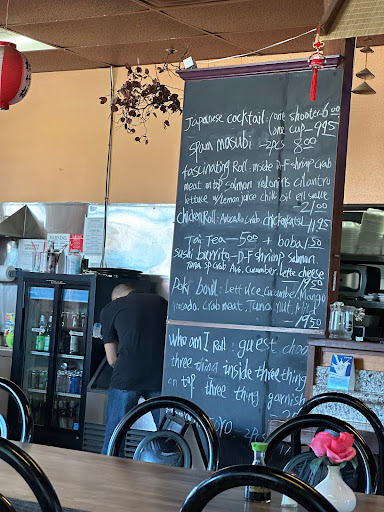 Japanese cocktail: one shooter 6.00
one cup - 9.95
Spam masubi - 2pcs 8.00
fascinating Roll: inside D-F-shrimp crab
meat on top salmon red onions cilantro
lettuce lemon juice chili oil eel sauce
21.00
Chicken Roll: Avocado crab chicken katsu 11.95
Tai Tea - 5.00 + boba 1.50
Sushi burrito - D-F shrimp salmon
Tuna sp crab Avo. Cucumber. Lette cheese
19.50
Poki Bowl: Lettuce, Cucumber, Mango
Avocado. Crab meat. Tuna
19.50
Who am I Roll: guest choo
three thing inside three thing
on top three thing garnish